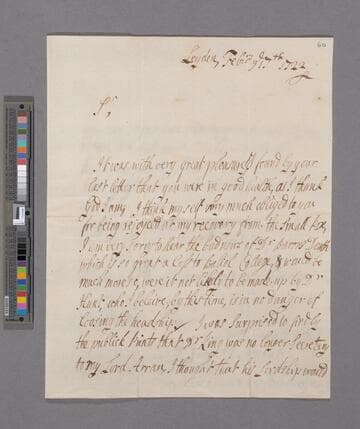 60
Leyden, Febry 17th 1722
Sr,
It was with very great pleasure I found by your
last letter that you were in good health, as I thank
God I am, I think my self very much obliged to you
for being so rejoyced at my recovery from the Small Pox,
I am very sorry to hear the bad news of Dr
which is so great a loss to Baliol College, & would be
much more so, were it not likely to be made up by Dr
Hunt, who I believe, by this time, is in no danger of
loosing the headship. I was surprised to find by
the publick prints that Dr King was no longer Secretary
to my Lord Arran, I thought that his Lordship would